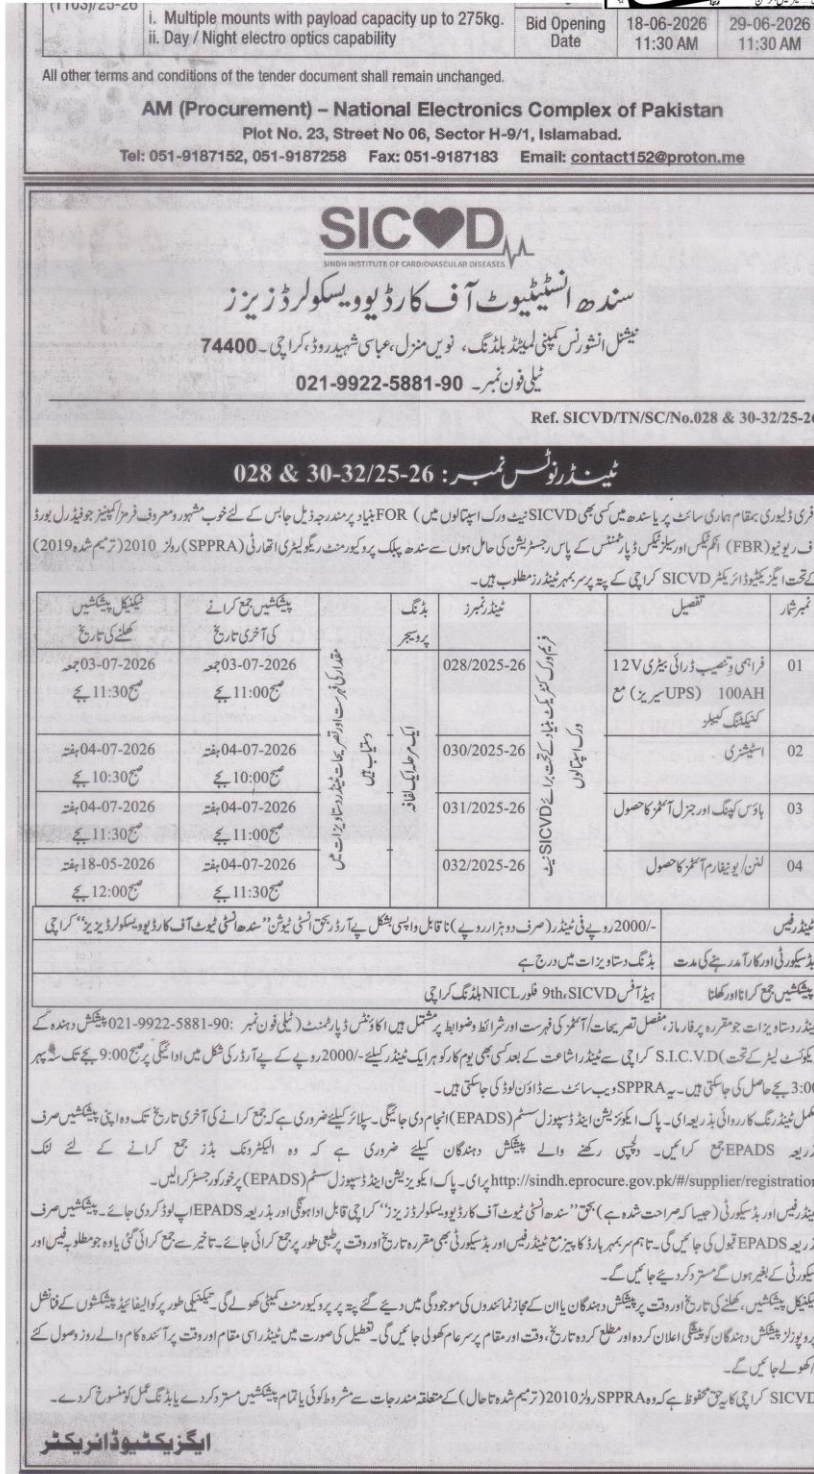 (1103)/25-26
i. Multiple mounts with payload capacity up to 275kg.
ii. Day / Night electro optics capability
Bid Opening Date
18-06-2026 11:30 AM
29-06-2026 11:30 AM
All other terms and conditions of the tender document shall remain unchanged.
AM (Procurement) – National Electronics Complex of Pakistan
Plot No. 23, Street No 06, Sector H-9/1, Islamabad.
Tel: 051-9187152, 051-9187258 Fax: 051-9187183 Email: contact152@proton.me
SICVD
SINDH INSTITUTE OF CARDIOVASCULAR DISEASES
سندھ انسٹیٹیوٹ آف کارڈیوویسکولر ڈزیزز
نیشنل انشورنس کمپنی لمیٹڈ بلڈنگ، نویں منزل، عباسی شہید روڈ، کراچی۔ 74400
ٹیلی فون نمبر۔ 021-9922-5881-90
Ref. SICVD/TN/SC/No.028 & 30-32/25-26
ٹینڈر نوٹس نمبر: 028 & 30-32/25-26
فری ڈلیوری بمقام ہماری سائٹ پر یا سندھ میں کسی بھی SICVD نیٹ ورک اسپتالوں میں) FOR بنیاد پر مندرجہ ذیل جابس کے لئے خوب مشہور و معروف فرمز/کمپنیز جو فیڈرل بورڈ
ف ریونیو (FBR) انکم ٹیکس اور سیلز ٹیکس ڈپارٹمنٹس کے پاس رجسٹریشن کی حامل ہوں سے سندھ پبلک پروکیورمنٹ ریگولیٹری اتھارٹی (SPPRA) رولز 2010 (ترمیم شدہ 2019)
کے تحت ایگزیکٹیو ڈائریکٹر SICVD کراچی کے پتہ پر سر بمہر ٹینڈرز مطلوب ہیں۔
نمبر شمار
تفصیل
ٹینڈر نمبرز
بڈنگ پروسیجر
پیشکشیں جمع کرانے کی آخری تاریخ
ٹیکنیکل پیشکشیں کھلنے کی تاریخ
فریم ورک کنٹریکٹ بنیاد کے تحت برائے SICVD نیٹ ورک اسپتالوں
ایک مرحلہ ایک لفافہ
مقدار کی فہرست اور تصریحات ٹینڈر دستاویزات میں دستیاب ہیں
01 فراہمی و تنصیب ڈرائی بیٹری 12V 100AH (UPS سیریز) مع کنیکٹنگ کیبلز 028/2025-26 03-07-2026 جمعہ صبح 11:00 بجے 03-07-2026 جمعہ صبح 11:30 بجے
02 اسٹیشنری 030/2025-26 04-07-2026 ہفتہ صبح 10:00 بجے 04-07-2026 ہفتہ صبح 10:30 بجے
03 ہاؤس کیپنگ اور جنرل آئٹمز کا حصول 031/2025-26 04-07-2026 ہفتہ صبح 11:00 بجے 04-07-2026 ہفتہ صبح 11:30 بجے
04 لنن/یونیفارم آئٹمز کا حصول 032/2025-26 04-07-2026 ہفتہ صبح 11:30 بجے 18-05-2026 ہفتہ صبح 12:00 بجے
ٹینڈر فیس 2000/- روپے فی ٹینڈر (صرف دو ہزار روپے) ناقابل واپسی بشکل پے آرڈر بحق انسٹی ٹیوشن "سندھ انسٹی ٹیوٹ آف کارڈیوویسکولر ڈیزیز" کراچی
بڈ سیکورٹی اور کار آمد رہنے کی مدت بڈنگ دستاویزات میں درج ہے
پیشکشیں جمع کرانا اور کھلنا ہیڈ آفس SICVD، 9th فلور NICL بلڈنگ کراچی
ٹینڈر دستاویزات جو مقررہ پرفارماز، مفصل تصریحات/آئٹمز کی فہرست اور شرائط و ضوابط پر مشتمل ہیں اکاؤنٹس ڈپارٹمنٹ (ٹیلی فون نمبر: 021-9922-5881-90 پیشکش دہندہ کے
یکوئسٹ لیٹر کے تحت) S.I.C.V.D کراچی سے ٹینڈر اشاعت کے بعد کسی بھی یوم کار کو ہر ایک ٹینڈر کیلئے 2000/- روپے کے پے آرڈر کی شکل میں ادائیگی پر صبح 9:00 بجے تک سہ پہر
3:00 بجے حاصل کی جاسکتی ہیں۔ یہ SPPRA ویب سائٹ سے ڈاؤن لوڈ کی جاسکتی ہیں۔
مکمل ٹینڈرنگ کارروائی بذریعہ ای۔ پاک ایکوزیشن اینڈ ڈسپوزل سسٹم (EPADS) انجام دی جائیگی۔ سپلائر کیلئے ضروری ہے کہ جمع کرانے کی آخری تاریخ تک وہ اپنی پیشکشیں صرف
ذریعہ EPADS جمع کرائیں۔ دلچسپی رکھنے والے پیشکش دہندگان کیلئے ضروری ہے کہ وہ الیکٹرونک بڈز جمع کرانے کے لئے لنک
http://sindh.eprocure.gov.pk/#/supplier/registration پر ای۔ پاک ایکویزیشن اینڈ ڈسپوزل سسٹم (EPADS) پر خود کو رجسٹر کرالیں۔
ٹینڈر فیس اور بڈ سیکورٹی (جیسا کہ صراحت شدہ ہے) بحق "سندھ انسٹی ٹیوٹ آف کارڈیوویسکولر ڈزیزز" کراچی قابل ادا ہوگی اور بذریعہ EPADS اپ لوڈ کردی جائے۔ پیشکشیں صرف
ذریعہ EPADS قبول کی جائیں گی۔ تاہم سر بمہر ہارڈ کاپیز مع ٹینڈر فیس اور بڈ سیکورٹی بھی مقررہ تاریخ اور وقت پر طبعی طور پر جمع کرائی جائے۔ تاخیر سے جمع کرائی گئی یا وہ جو مطلوبہ فیس اور
سیکورٹی کے بغیر ہوں گے مسترد کردیئے جائیں گے۔
ٹیکنیکل پیشکشیں، کھلنے کی تاریخ اور وقت پر پیشکش دہندگان یا ان کے مجاز نمائندوں کی موجودگی میں دیئے گئے پتہ پر پروکیورمنٹ کمیٹی کھولے گی۔ تیکنیکی طور پر کوالیفائیڈ پیشکشوں کے فنانشل
پروپوزلز پیشکش دہندگان کو پیشگی اعلان کردہ اور مطلع کردہ تاریخ، وقت اور مقام پر سرعام کھولی جائیں گی۔ تعطیل کی صورت میں ٹینڈر اسی مقام اور وقت پر آئندہ کام والے روز وصول کئے
/کھولے جائیں گے۔
SICVD کراچی کا یہ حق محفوظ ہے کہ وہ SPPRA رولز 2010 (ترمیم شدہ تاحال) کے متعلقہ مندرجات سے مشروط کوئی یا تمام پیشکشیں مسترد کردے یا بڈنگ عمل کو منسوخ کردے۔
ایگزیکٹیو ڈائریکٹر